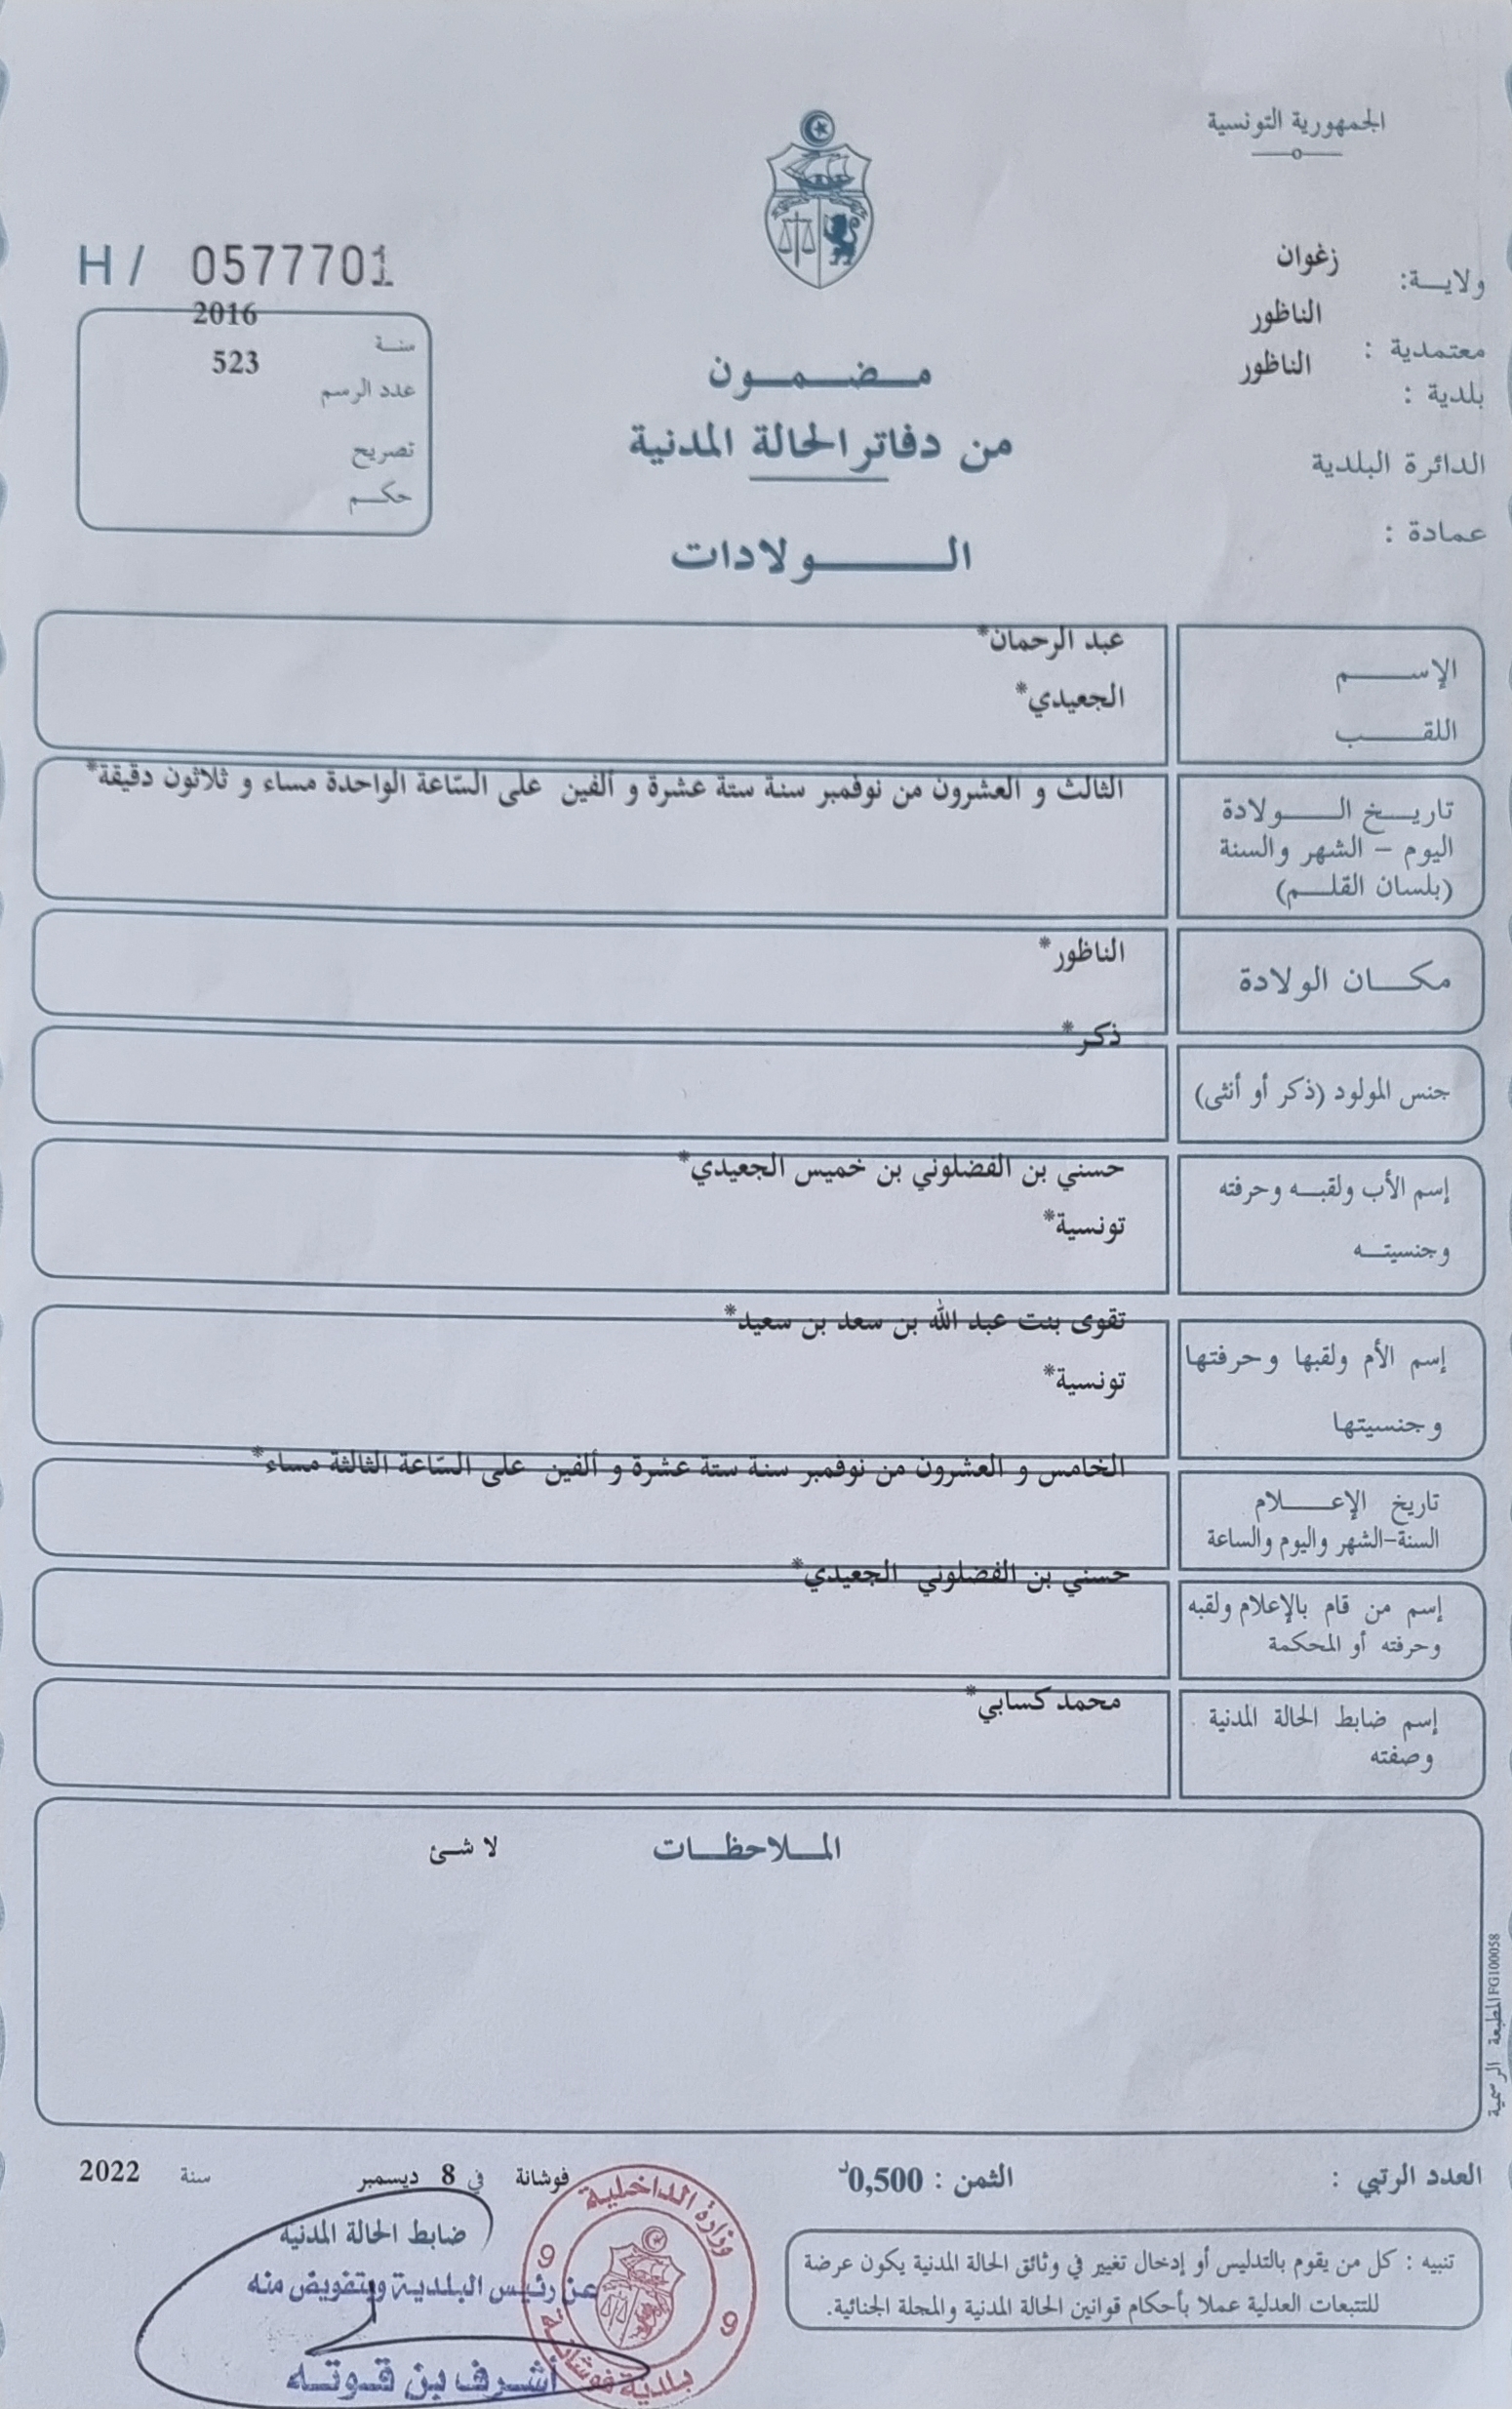 الجمهورية التونسية
ولايـــة: زغوان
معتمدية : الناظور
بلدية : الناظور
الدائرة البلدية
عمادة :
H/ 0577701
سنــة 2016
عدد الرسم 523
تصريح
حكــم
مـضـمـون
من دفاتر الحالة المدنية
الـــولادات
الإســـم عبد الرحمان*
اللقــب الجعيدي*
تاريــخ الــــولادة الثالث و العشرون من نوفمبر سنة ستة عشرة و ألفين على السّاعة الواحدة مساء و ثلاثون دقيقة*
اليوم - الشهر والسنة
(بلسان القلــم)
مكـــان الولادة الناظور*
جنس المولود (ذكر أو أنثى) ذكر*
إسم الأب ولقبــه وحرفته حسني بن الفضلوني بن خميس الجعيدي*
وجنسيتــه تونسية*
إسم الأم ولقبها وحرفتها تقوى بنت عبد الله بن سعد بن سعيد*
وجنسيتها تونسية*
تاريخ الإعــــلام الخامس و العشرون من نوفمبر سنة ستة عشرة و ألفين على السّاعة الثالثة مساء*
السنة-الشهر واليوم والساعة
إسم من قام بالإعلام ولقبه حسني بن الفضلوني الجعيدي*
وحرفته أو المحكمة
إسم ضابط الحالة المدنية محمد كسابي*
وصفته
المــلاحظــات لا شئ
المطبعة الرسمية FG100058
العدد الرتبي :
الثمن : 0,500د
فوشانة في 8 ديسمبر سنة 2022
ضابط الحالة المدنية
عن رئيس البلدية وبتفويض منه
أشرف بن قوته
وزارة الداخلية
9 9
بلدية فوشانة
تنبيه : كل من يقوم بالتدليس أو إدخال تغيير في وثائق الحالة المدنية يكون عرضة
للتتبعات العدلية عملا بأحكام قوانين الحالة المدنية والمجلة الجنائية.